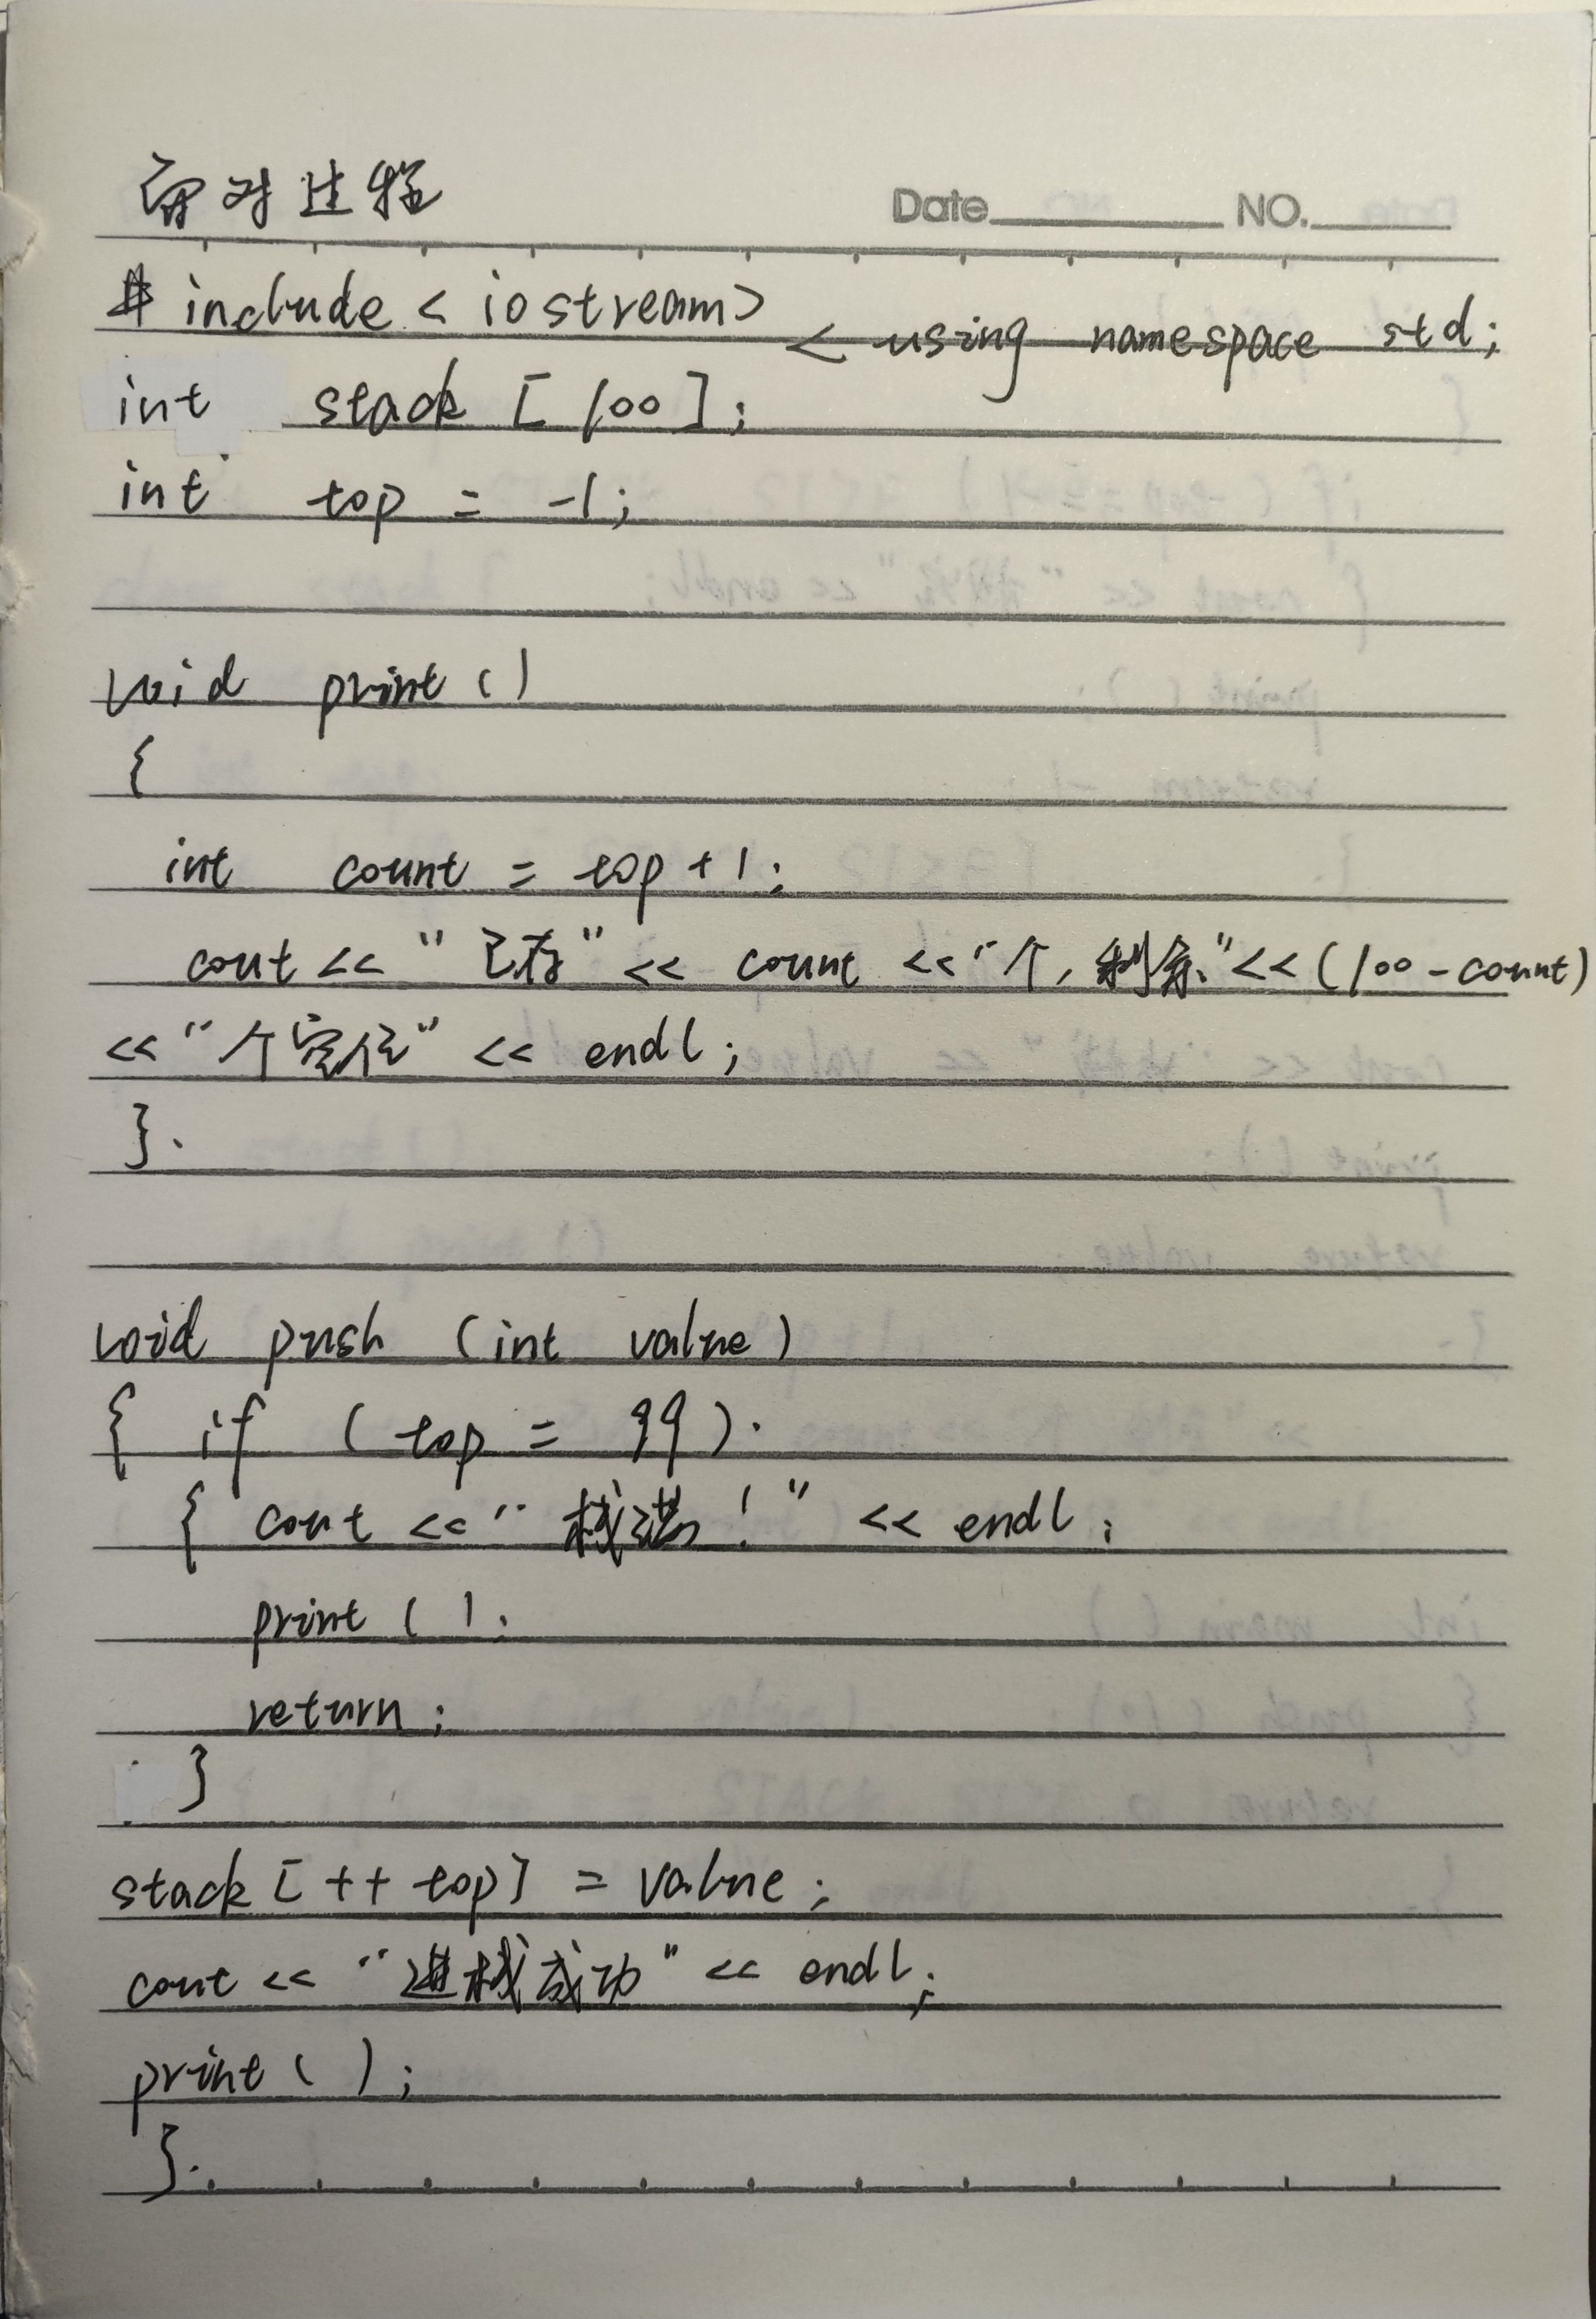 面对过程
Date NO.
#include <iostream>
< using namespace std;
int stack [100];
int top = -1;
void print()
{
int count = top + 1;
cout << "已存" << count << "个,剩余"<<(100-count)
<< "个空位" << endl;
}.
void push (int value)
{ if (top = 99).
{ cout << "栈满!" << endl;
print ();
return;
}
stack [++top] = value;
cout << "进栈成功" << endl;
print ( );
}.